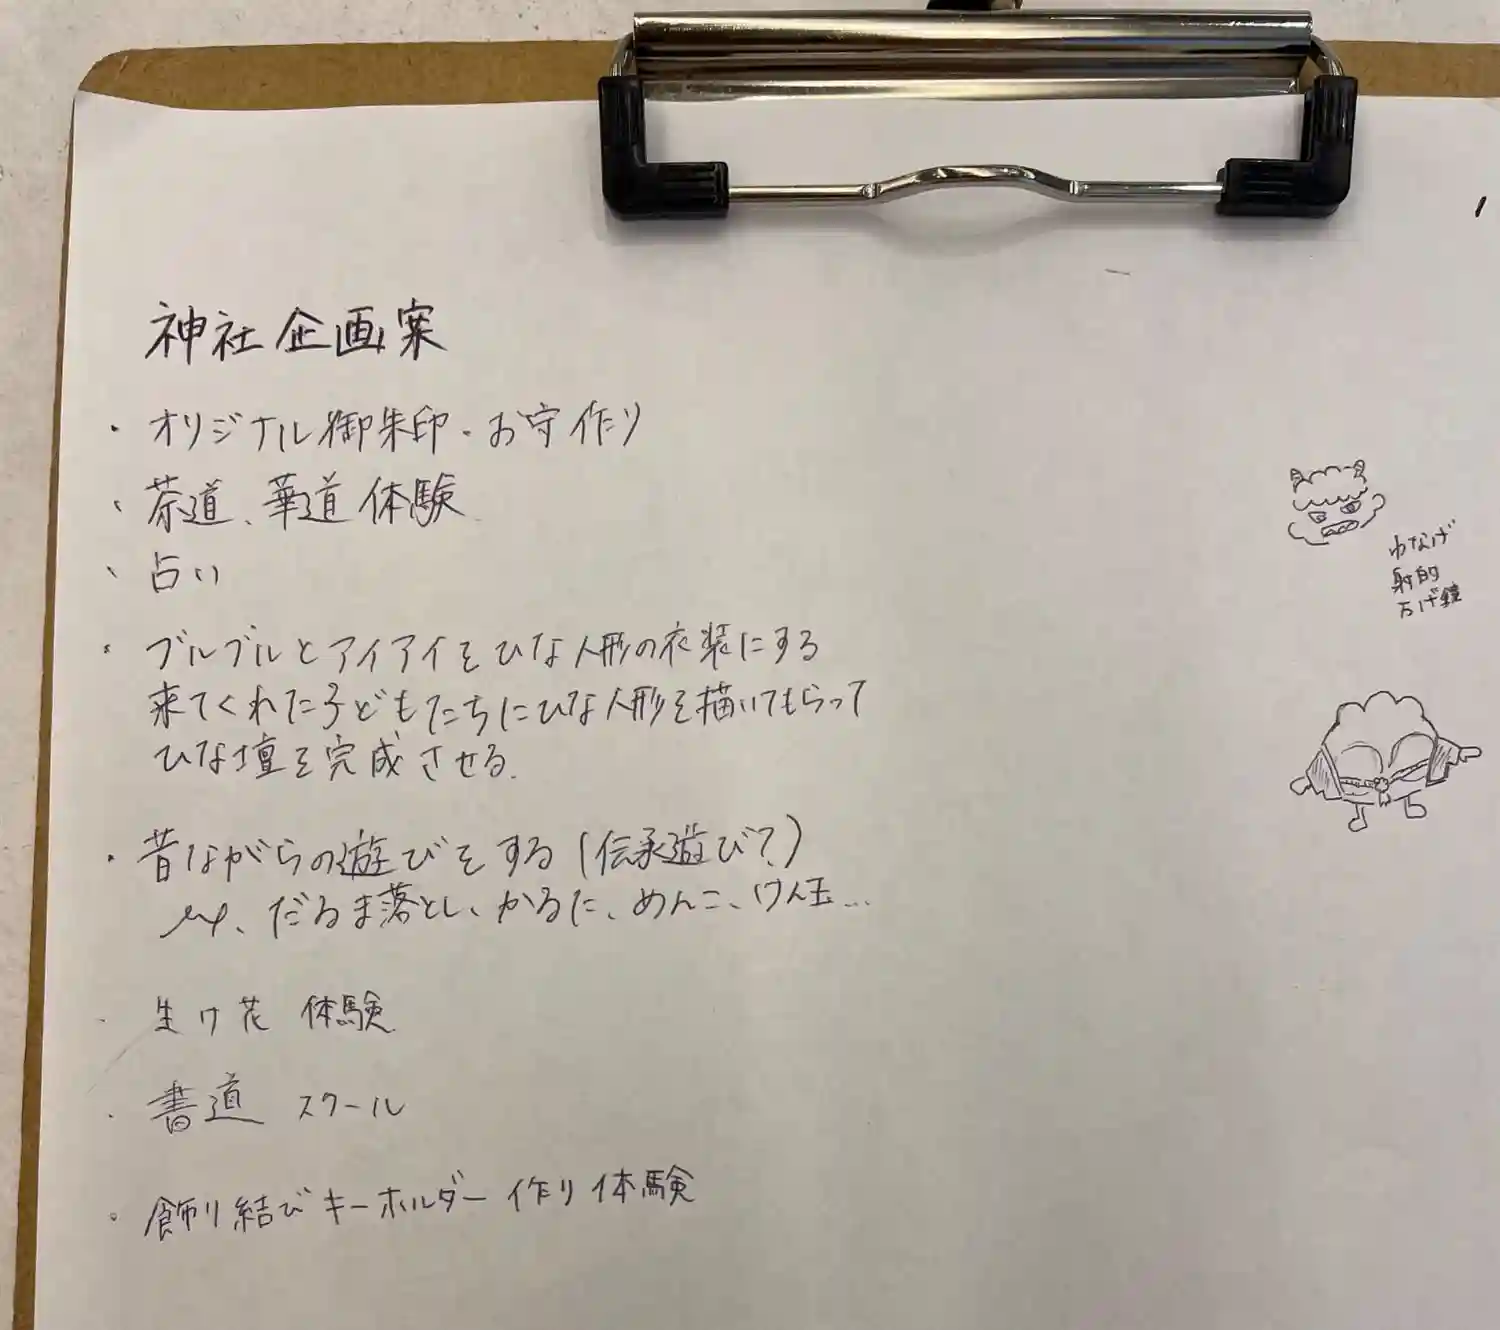 神社企画案
・オリジナル御朱印・お守作り
・茶道、華道体験
・占い
・ブルブルとアイアイをひな人形の衣装にする
来てくれた子どもたちにひな人形を描いてもらって
ひな壇を完成させる.
・昔ながらの遊びをする(伝承遊び?)
、だるま落とし、かるた、めんこ、けん玉...
・生け花 体験
・書道 スクール
・飾り結びキーホルダー作り体験
わなげ
射的